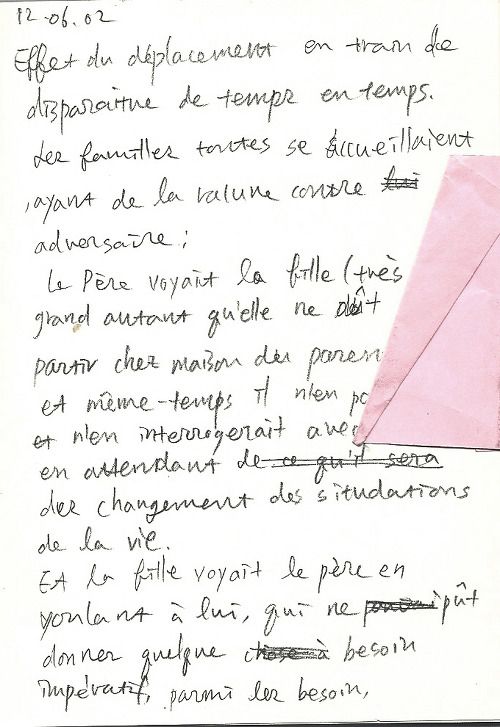 12.06.02
Effet du déplacement en train de
disparaitne de temps en temps.
des familles toutes se accueillaient
, ayant de la valune contre lui
adversaire ;
Le Père voyait la fille (très
grand autant qu'elle ne dût
partir chez maison des paren
et même-temps il n'en po
et n'en interrogerait avec
en attendant de ce qu'il sera
des changement des situdations
de la vie.
Et la fille voyait le père en
voulant à lui, qui ne pût
donner quelque chose à besoin
impératif, parmi les besoin,